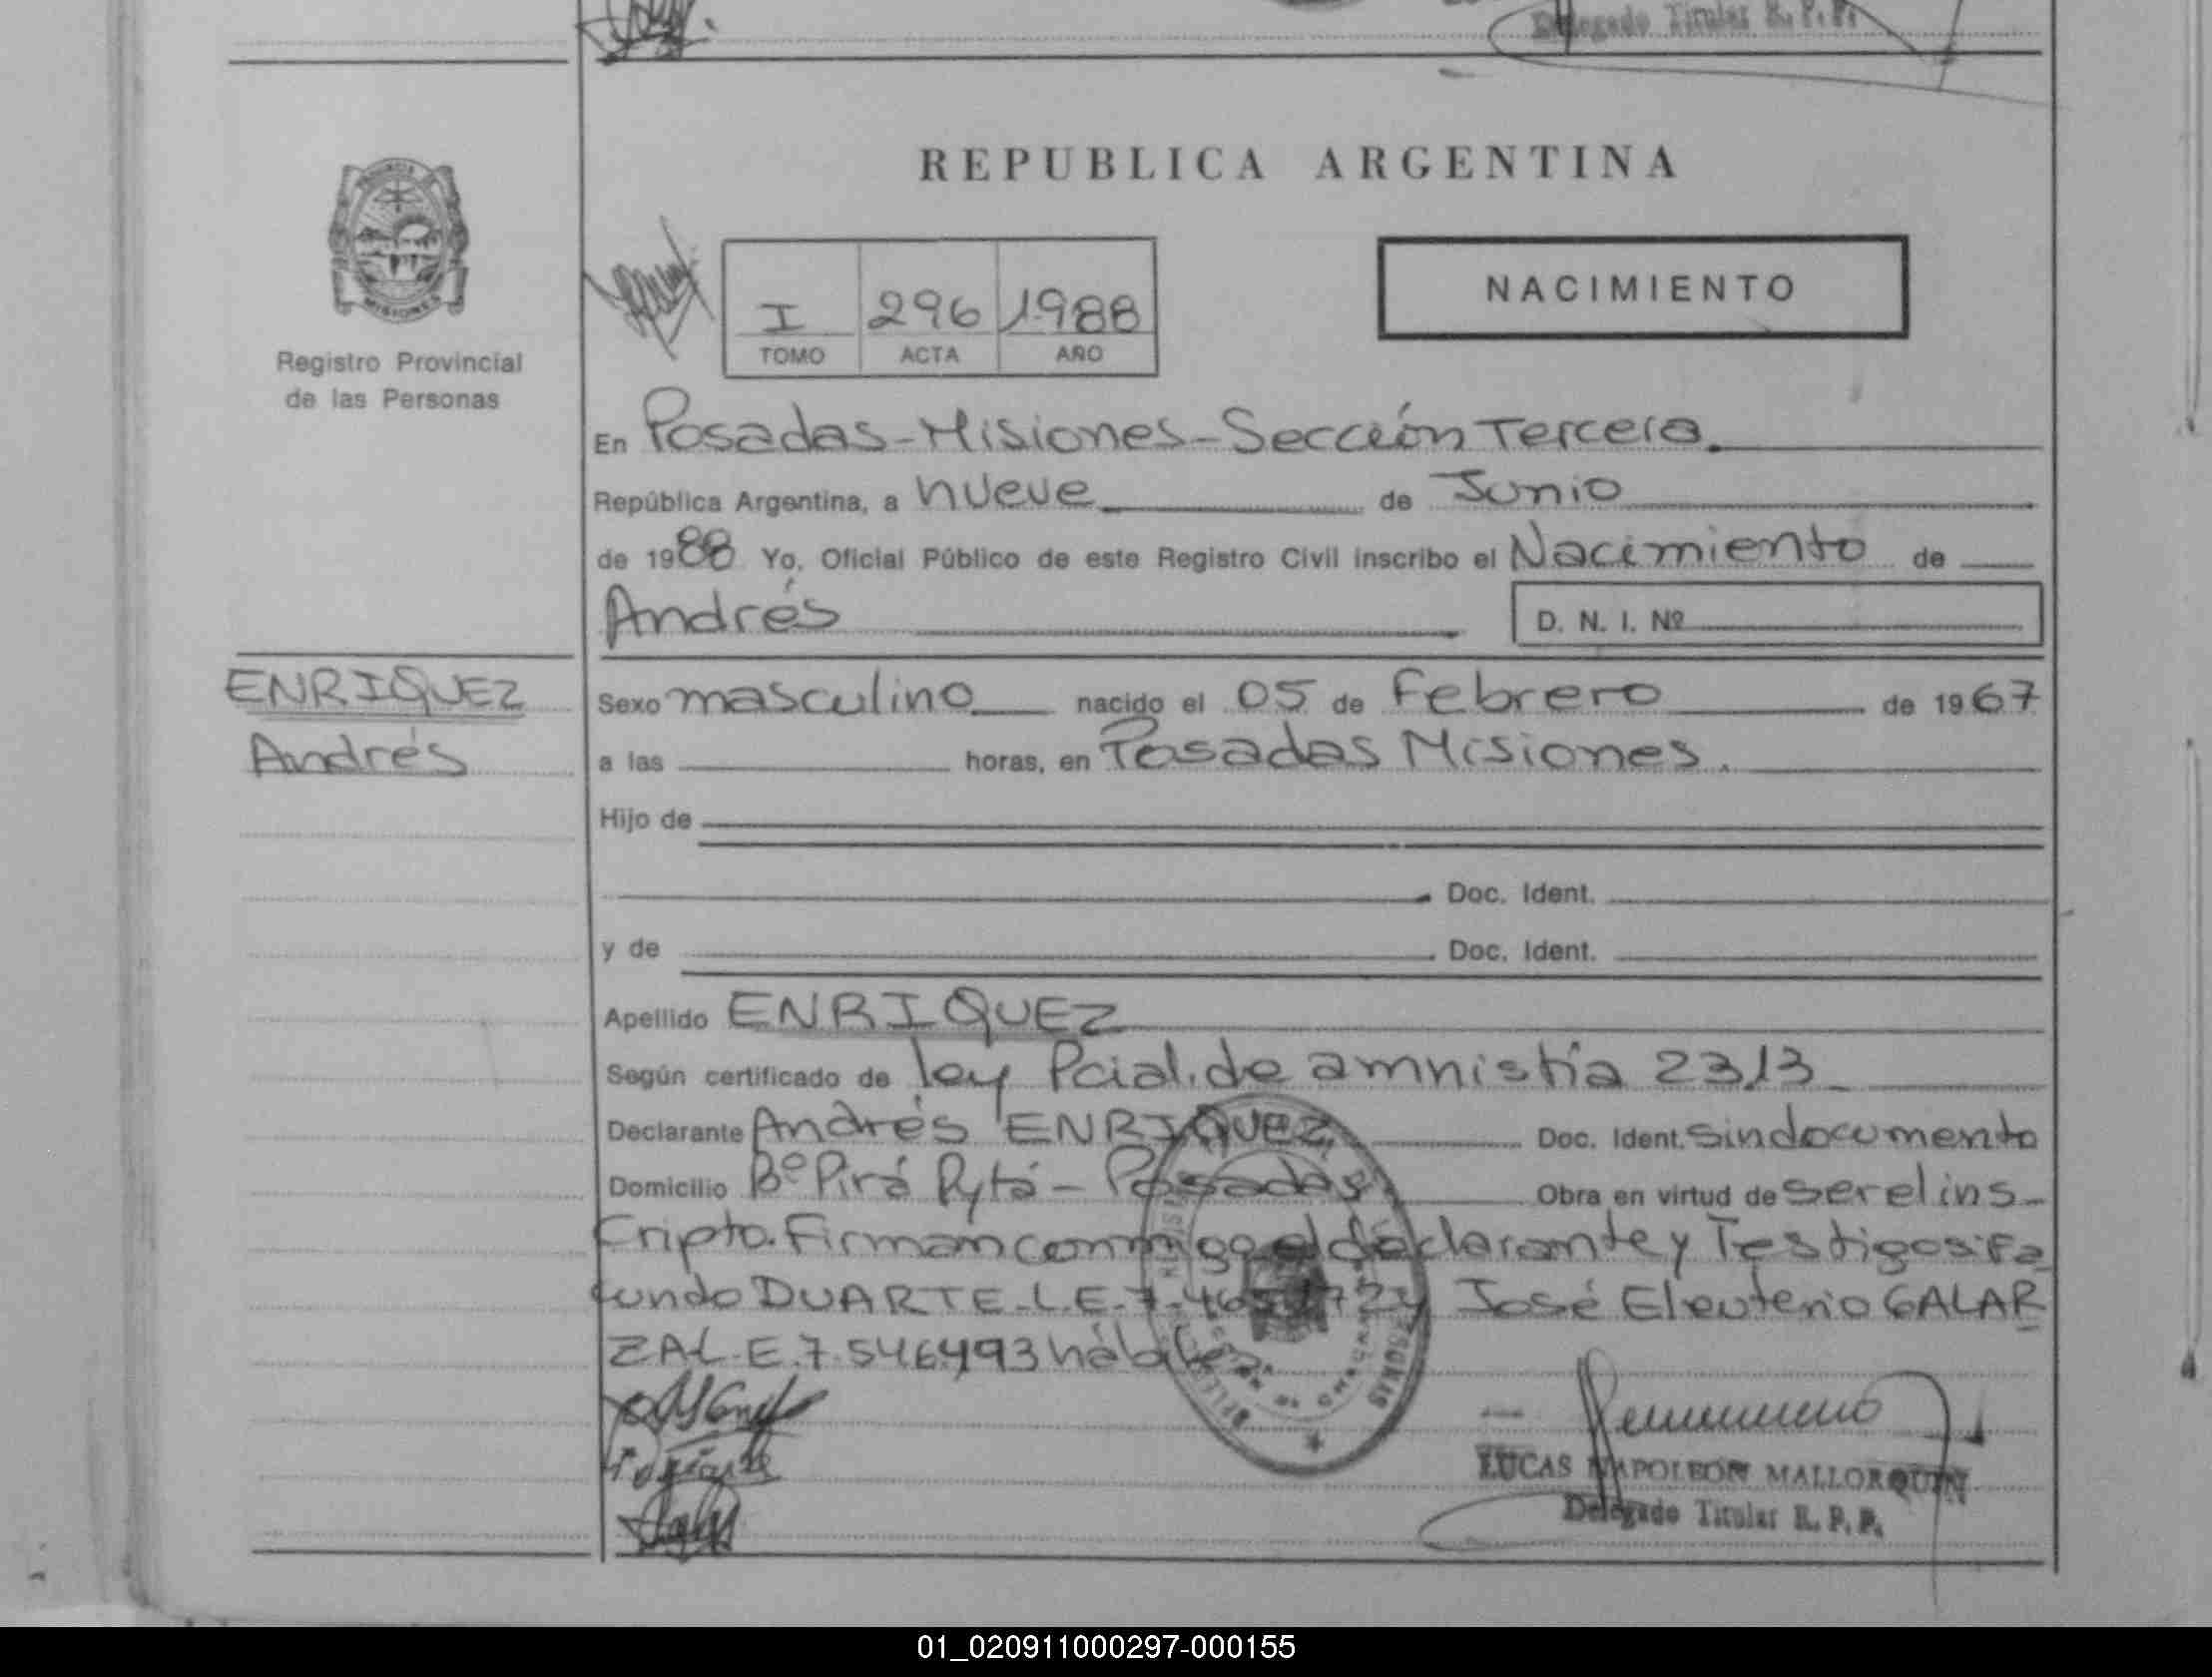 Delegado Titular R. P. P.
REPUBLICA ARGENTINA
NACIMIENTO
I 296 1988
TOMO ACTA AÑO
Registro Provincial
de las Personas
En Posadas-Misiones-Sección Tercera.
República Argentina, a nueve de Junio
de 1988 Yo, Oficial Público de este Registro Civil inscribo el Nacimiento de
Andrés D. N. I. Nº
ENRIQUEZ
Andrés
Sexo masculino nacido el 05 de Febrero de 1967
a las horas, en Posadas Misiones.
Hijo de
Doc. Ident.
y de Doc. Ident.
Apellido ENRIQUEZ
Según certificado de ley Pcial. de amnistía 2313
Declarante Andrés ENRIQUEZ Doc. Ident. sin documento
Domicilio Bº Pirá Pytá - Posadas Obra en virtud de ser el ins-
cripto. Firman conmigo el declarante y Testigos: Fa
cundo DUARTE-L.E.7. y José Eleuterio GALAR
ZA L.E.7.546.493
LUCAS NAPOLEON MALLORQUIN
Delegado Titular R. P. P.
01_020911000297-000155